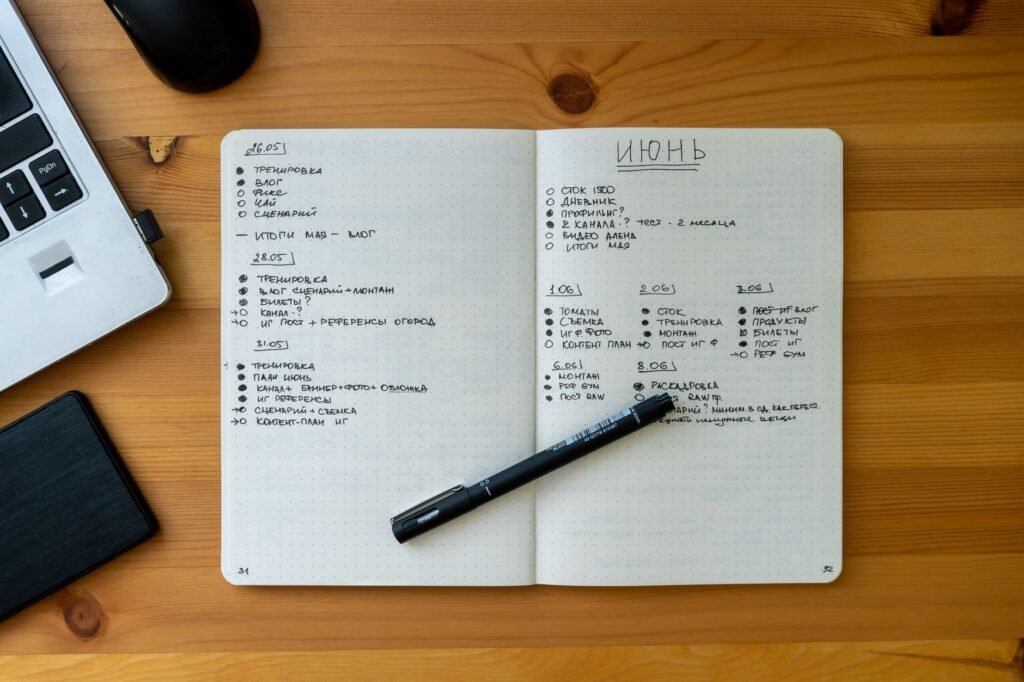 26.05
ТРЕНИРОВКА
ВЛОГ
ФИКС
ЧАЙ
СЦЕНАРИЙ
— ИТОГИ МАЯ – ВЛОГ
28.05
ТРЕНИРОВКА
ВЛОГ СЦЕНАРИЙ + МОНТАЖ
БИЛЕТЫ?
КАНАЛ - ?
ИГ ПОСТ + РЕФЕРЕНСЫ ОГОРОД
31.05
ТРЕНИРОВКА
ПЛАН ИЮНЬ
КАНАЛ + БАННЕР + ФОТО + ОБЛОЖКА
ИГ РЕФЕРЕНСЫ
СЦЕНАРИЙ + СЪЕМКА
КОНТЕНТ-ПЛАН ИГ
31
ИЮНЬ
СТОК 1500
ДНЕВНИК
ПРОФИЛЬ ИГ?
2 КАНАЛА - ? ТЕСТ - 2 МЕСЯЦА
ВИДЕО АЛЕНА
ИТОГИ МАЯ
1.06
ТОМАТЫ
СЪЕМКА
ИГ Ф. ФОТО
КОНТЕНТ ПЛАН
2.06
СТОК
ТРЕНИРОВКА
МОНТАЖ
ПОСТ ИГ Ф
3.06
ПОСТ ИГ ВЛОГ
ПРОДУКТЫ
БИЛЕТЫ
ПОСТ ИГ
РЕФ GYM
6.06
МОНТАЖ
РЕФ GYM
ПОСТ RAW
8.06
РАСКАДРОВКА
RAW ПР.
? МИНИМ. В ОД, КАК ПЕРЕСТ.
НЕНУЖНЫЕ ВЕЩИ
32
PgDn
0.5